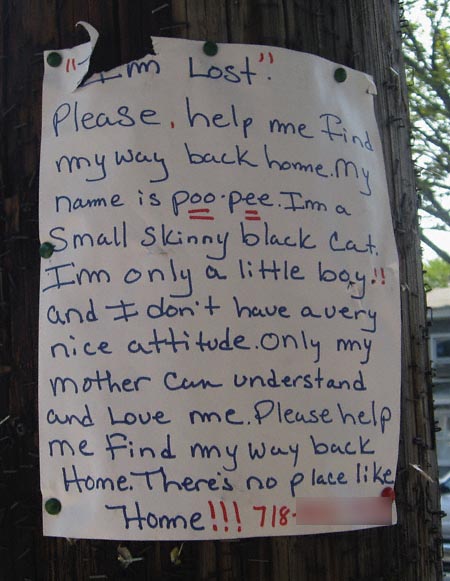 "I'm Lost".
Please, help me find
my way back home. My
name is poo-pee. I'm a
Small skinny black cat.
I'm only a little boy!!
and I don't have a very
nice attitude. Only my
mother can understand
and Love me. Please help
me find my way back
Home. There's no place like
Home!!! 718-